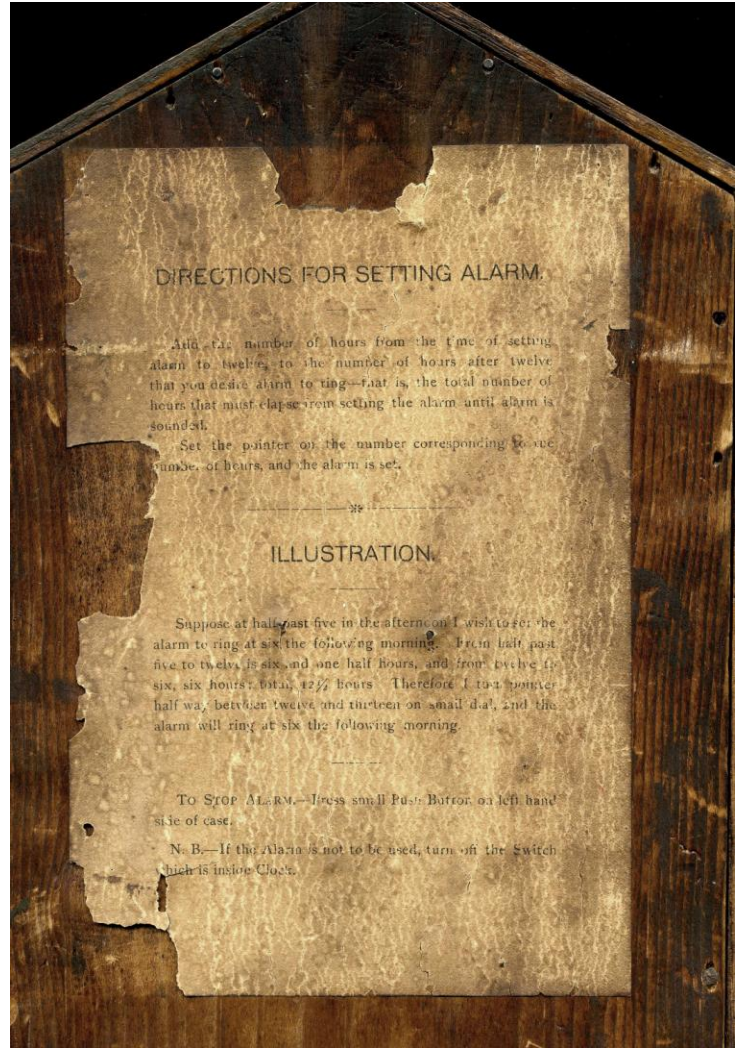 DIRECTIONS FOR SETTING ALARM.
Add the number of hours from the time of setting
alarm to twelve, to the number of hours after twelve
that you desire alarm to ring—that is, the total number of
hours that must elapse from setting the alarm until alarm is
sounded.
Set the pointer on the number corresponding to the
number of hours, and the alarm is set.
ILLUSTRATION.
Suppose at half-past five in the afternoon I wish to set the
alarm to ring at six the following morning. From half past
five to twelve is six and one half hours, and from twelve to
six, six hours; total, 12½ hours Therefore I turn pointer
half way between twelve and thirteen on small dial, and the
alarm will ring at six the following morning.
TO STOP ALARM.—Press small Push Button on left hand
side of case.
N. B.—If the Alarm is not to be used, turn off the Switch
which is inside Clock.